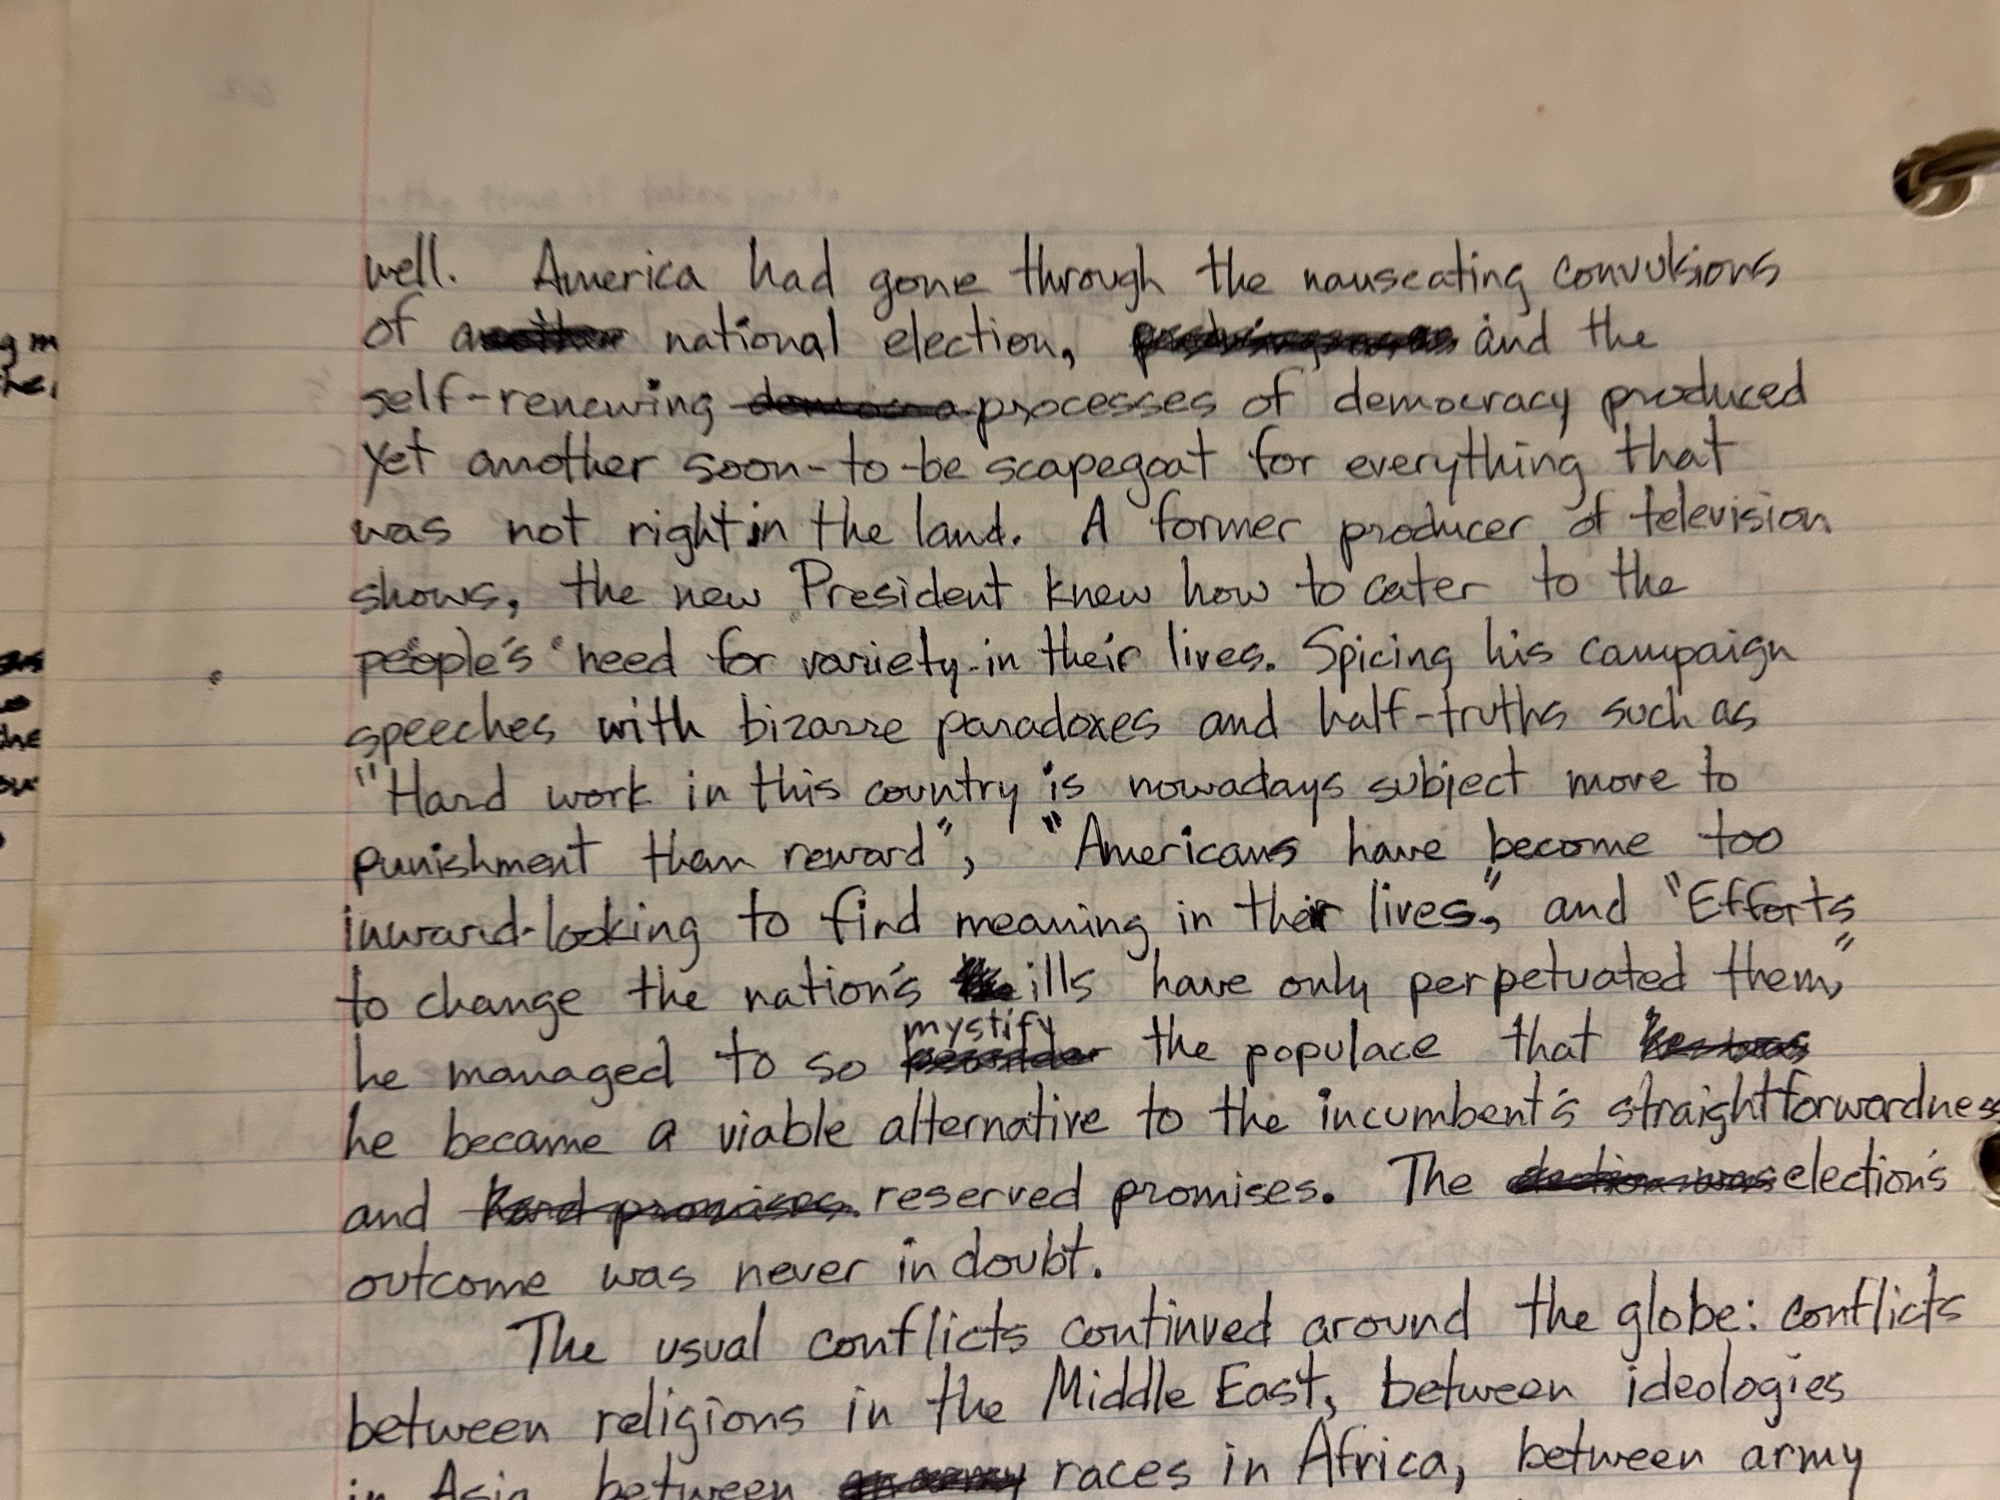 well. America had gone through the nauseating convulsions
of a national election, and the
self-renewing processes of democracy produced
yet another soon-to-be scapegoat for everything that
was not right in the land. A former producer of television
shows, the new President knew how to cater to the
people's need for variety in their lives. Spicing his campaign
speeches with bizarre paradoxes and half-truths such as
"Hard work in this country is nowadays subject more to
punishment than reward", "Americans have become too
inward-looking to find meaning in their lives", and "Efforts
to change the nation's ills have only perpetuated them,"
mystify
he managed to so the populace that
he became a viable alternative to the incumbent's straightforwardness
and hard promises. reserved promises. The election's
outcome was never in doubt.
The usual conflicts continued around the globe: conflicts
between religions in the Middle East, between ideologies
in Asia, between races in Africa, between army